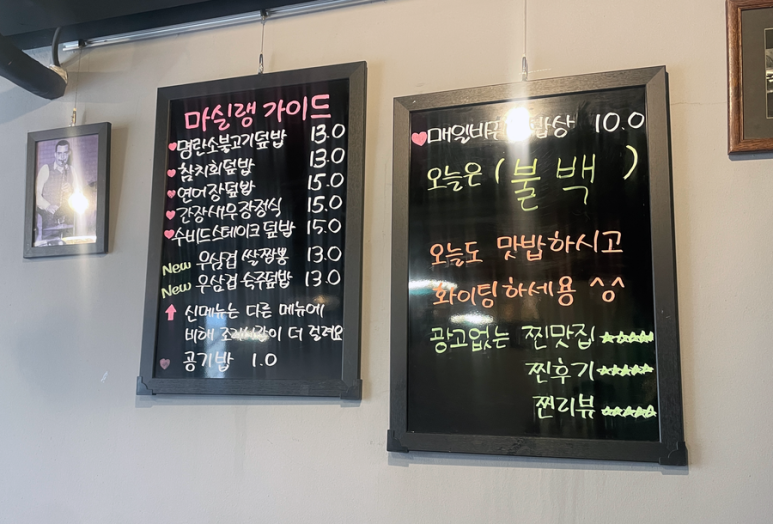 마실랭 가이드
명란소불고기덮밥 13.0
참치회덮밥 13.0
연어장덮밥 15.0
간장새우장정식 15.0
수비드스테이크덮밥 15.0
New 우삼겹 쌀짬뽕 13.0
New 우삼겹 숙주덮밥 13.0
신메뉴는 다른 메뉴에
비해 조리시간이 더 걸려요
공기밥 1.0
10.0
오늘은 (불백)
오늘도 맛밥하시고
화이팅하세용 ^o^
광고없는 찐맛집 ☆☆☆☆☆
찐후기 ☆☆☆☆☆
찐리뷰 ☆☆☆☆☆